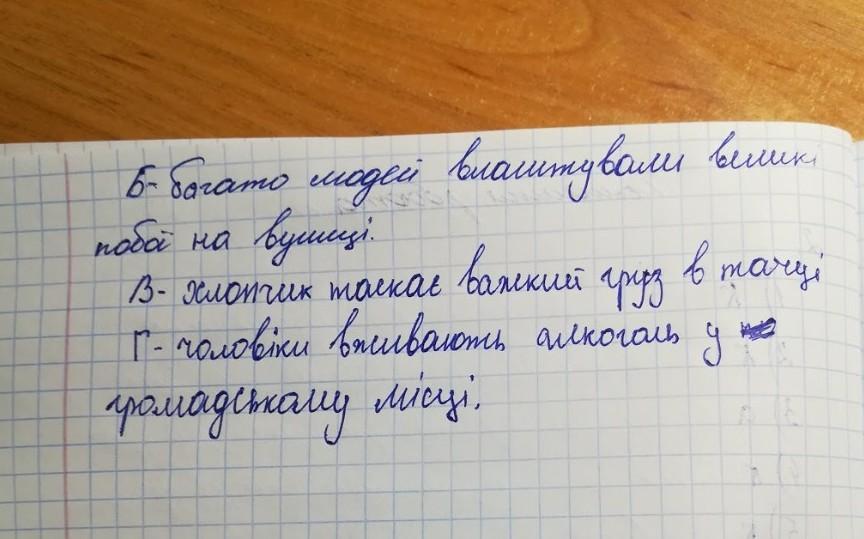 Б- багато людей влаштували великі
побої на вулиці.
В- хлопчик таскає важкий груз в тачці
Г- чоловіки вживають алкоголь у
громадському місці.